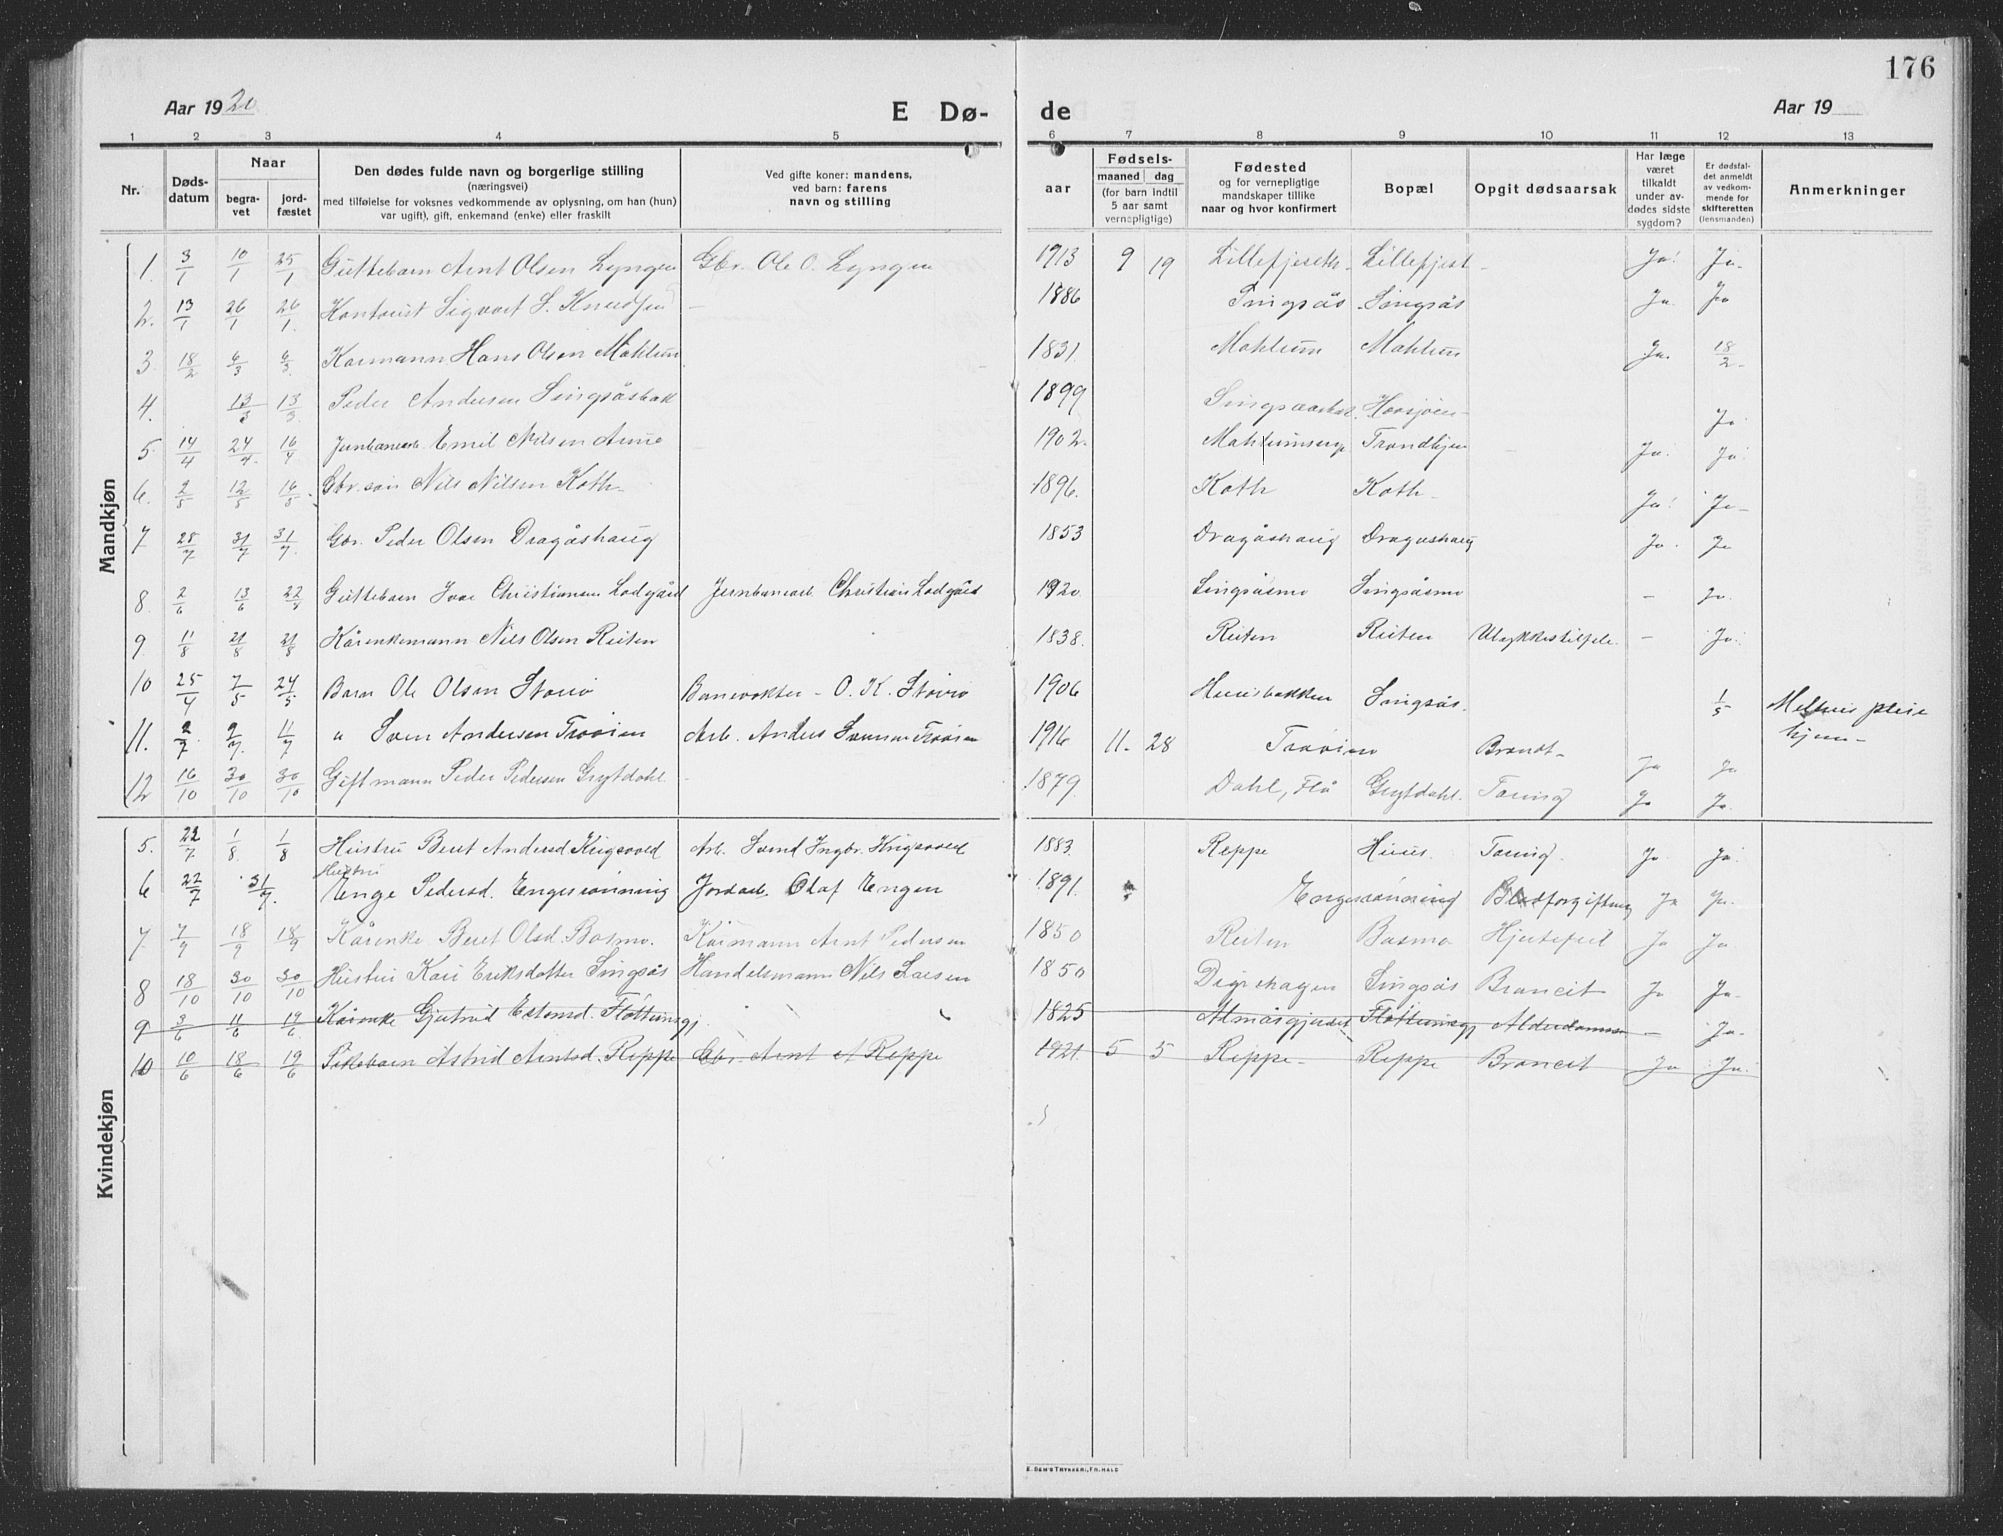 176
Aar 1920
E Dø-
de
Aar 19
1 2 3 4 5 6 7 8 9 10 11 12 13
Nr.
Døds-
datum
Naar
begra-
vet
jord-
fæstet
Den dødes fulde navn og borgerlige stilling
(næringsvei)
med tilføielse for voksnes vedkommende av oplysning, om han (hun)
var ugift), gift, enkemand (enke) eller fraskilt
Ved gifte koner: mandens,
ved barn: farens
navn og stilling
aar
Fødsels-
maaned dag
(for barn indtil
5 aar samt
vernepligtige)
Fødested
og for vernepligtige
mandskaper tillike
naar og hvor konfirmert
Bopæl
Opgit dødsaarsak
Har læge
været
tilkaldt
under av-
dødes sidste
sygdom?
Er dødsfal-
det anmeldt
av vedkom-
mende for
skifteretten
(lensmanden)
Anmerkninger
Mandkjøn
1. 3/1 10/1 25/1 Guttebarn Arnt Olsen Lyngen Gbr. Ole O. Lyngen 1913 9 19 Lillefjeseth- Lillefjest - Ja! Ja-
2. 13/1 26/1 26/1. Kontorist Sigvart S. Knudsen - 1886 Singsås Singsås Ja. Ja
3. 18/2 6/3 6/3. Kaarmann Hans Olsen Mohlum 1831. Mohlum Mohlum Ja. 18/2-
4. 13/3 13/3 Peder Andersen Singsåsbak 1899 Ja
5. 14/4 24/4. 16/4 Jernbanearb. Emil Nilsen Aune - 1902. Trondhjem Ja. Ja!
6. 2/5 12/5 16/5 Gbr.søn Nils Nilsen Koth- 1896. Koth Koth- Ja! Ja-
7 28/7 31/7 31/7. Gbr. Peder Olsen Dragåshaug 1853 Dragåshaug Dragåshaug Ja. Ja
8. 2/6 13/6 22/9 Guttebarn Ivar Christiansen Lodgård Jernbanearb Christian Lodgård 1920. Singsåsmo Singsåsmo - Ja.
9. 11/8 21/8 21/8 Kårenkemann Nils Olsen Ruten 1838. Ruten Ruten Ulykkestilfele. - Ja!
10 25/4 7/5 24/5. Barn Ole Olsen Storrø Banevokter - O. K. Storrø 1906 Huusbakken Singsås. 1/5 pleie
hjem-
11. 2/7. 9/7. 11/7 " Sven Andersen Troøien Arb. Anders Svensen Troøien 1916 11- 28 Troøien Brandt- Ja Ja
12 16/10 30/10 30/10 Gift mann Peder Pedersen Grytdahl - 1879. Dahl, Flå Grytdahl. Tæring Ja Ja.
Kvindekjøn
5. 22/7 1/8 1/8 Hustru Beret Andersd Krigsvold Arb. Svend Ingbr. Krigsvold 1883. Reppe Huus. Tæring. Ja Ja.
6 22/7 31/7. Hustru
Enge Pedersd. Engesrønning Jordarb. Olaf Engen 1891. Engesrønning Blodforgiftning Ja Ja.
7. 7/9 18/9 18/9 Kårenke Beret Olsd. Bosmo. Kårmann Arnt Pedersen 1850 Ruten Bosmo Hjertefeil Ja Ja.
8 18/10 30/10 30/10 Hustru Kari Eriksdotter Singsås Handelsmann Nils Larsen 1850 Digeshagen Singsås Broncit Ja Ja-
9 3/6 11/6 19/6 Kårenke Gjertrud Estensd. 1825 Alderdomssv - Ja-
10 10/6 18/6 19/6 Pikebarn Astrid Arntsd. Reppe Gbr. Arnt Reppe 1921 5 5 Reppe- Reppe Broncit Ja Ja.
E. SEM'S TRYKKERI, FR.HALD